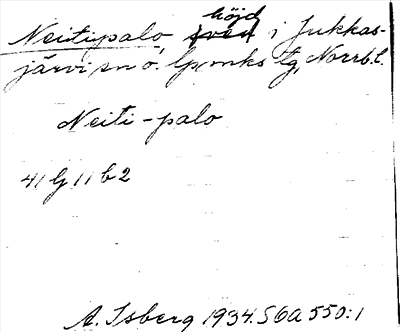 Neitipalo höjd i Jukkas-
järvi sn o. lpmks tg, Norrb. l.
Neiti-palo
41 G 11 b 2
A. Isberg 1934. S6a 550:1